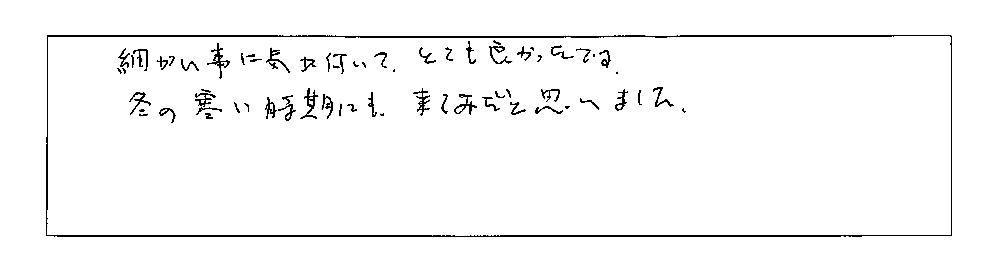 細かい事に気が付いて、とても良かったです。
冬の寒い時期にも、来てみたいと思いました。